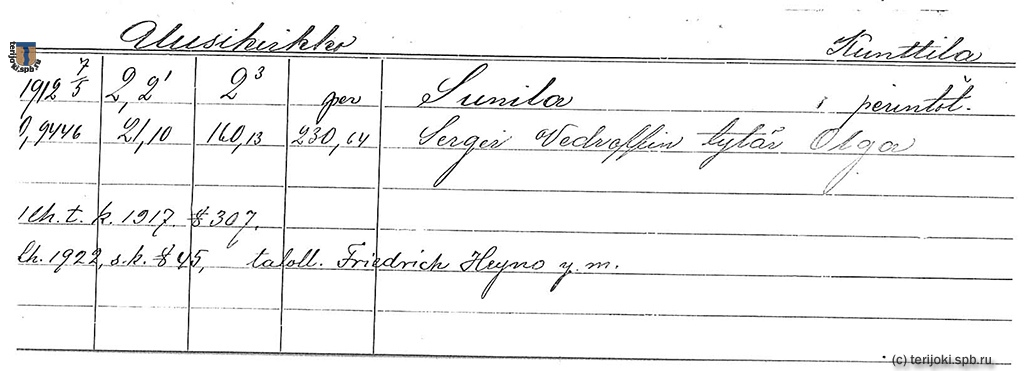 Uusikirkko Kunttila
1912 7/5 2,2¹ 2³ per Sunila i perintöt.
0,9446 21,10 160,13 230,64 Sergei Vedroffin tytär Olga
1 lh. t. k. 1917. § 307.
lh. 1922, s.k. § 45, taloll. Friedrich Heyno y.m.
terijoki.spb.ru
(c) terijoki.spb.ru